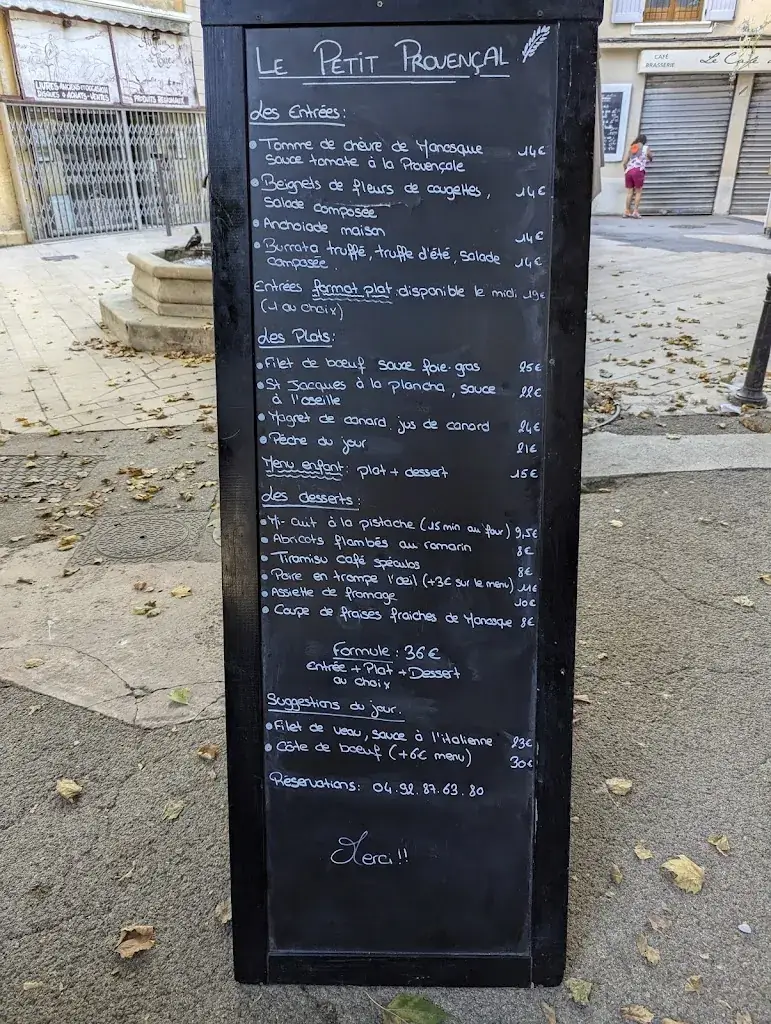 LE PETIT PROVENÇAL
Les Entrées:
Tomme de chèvre de Manosque 14€
sauce tomate à la Provençale
Beignets de fleurs de courgettes, 14€
salade composée
Anchoiade maison 14€
Burrata truffé, truffe d'été, salade 14€
composée.
Entrées format plat: disponible le midi 19€
(1 au choix)
Les Plats:
Filet de bœuf sauce foie-gras 25€
St Jacques à la plancha, sauce 22€
à l'oseille
Magret de canard, jus de canard 24€
Pêche du jour 21€
Menu enfant: plat + dessert 15€
Les desserts:
Mi-cuit à la pistache (15 min au four) 9,5€
Abricots flambés au romarin 8€
Tiramisu café spéculos 8€
Poire en trompe l'œil (+3€ sur le menu) 11€
Assiette de fromage 10€
Coupe de fraises fraiches de Manosque 8€
Formule: 36€
Entrée + Plat + Dessert
au choix
Suggestions du jour.
Filet de veau, sauce à l'italienne 23€
Côte de boeuf (+6€ menu) 30€
Réservations: 04.92.87.63.80
Merci!!
LIVRES ANCIENS D'OCCASION
DISQUES ACHATS-VENTES
PRODUITS REGIONAUX
CAFÉ
BRASSERIE
Le Café